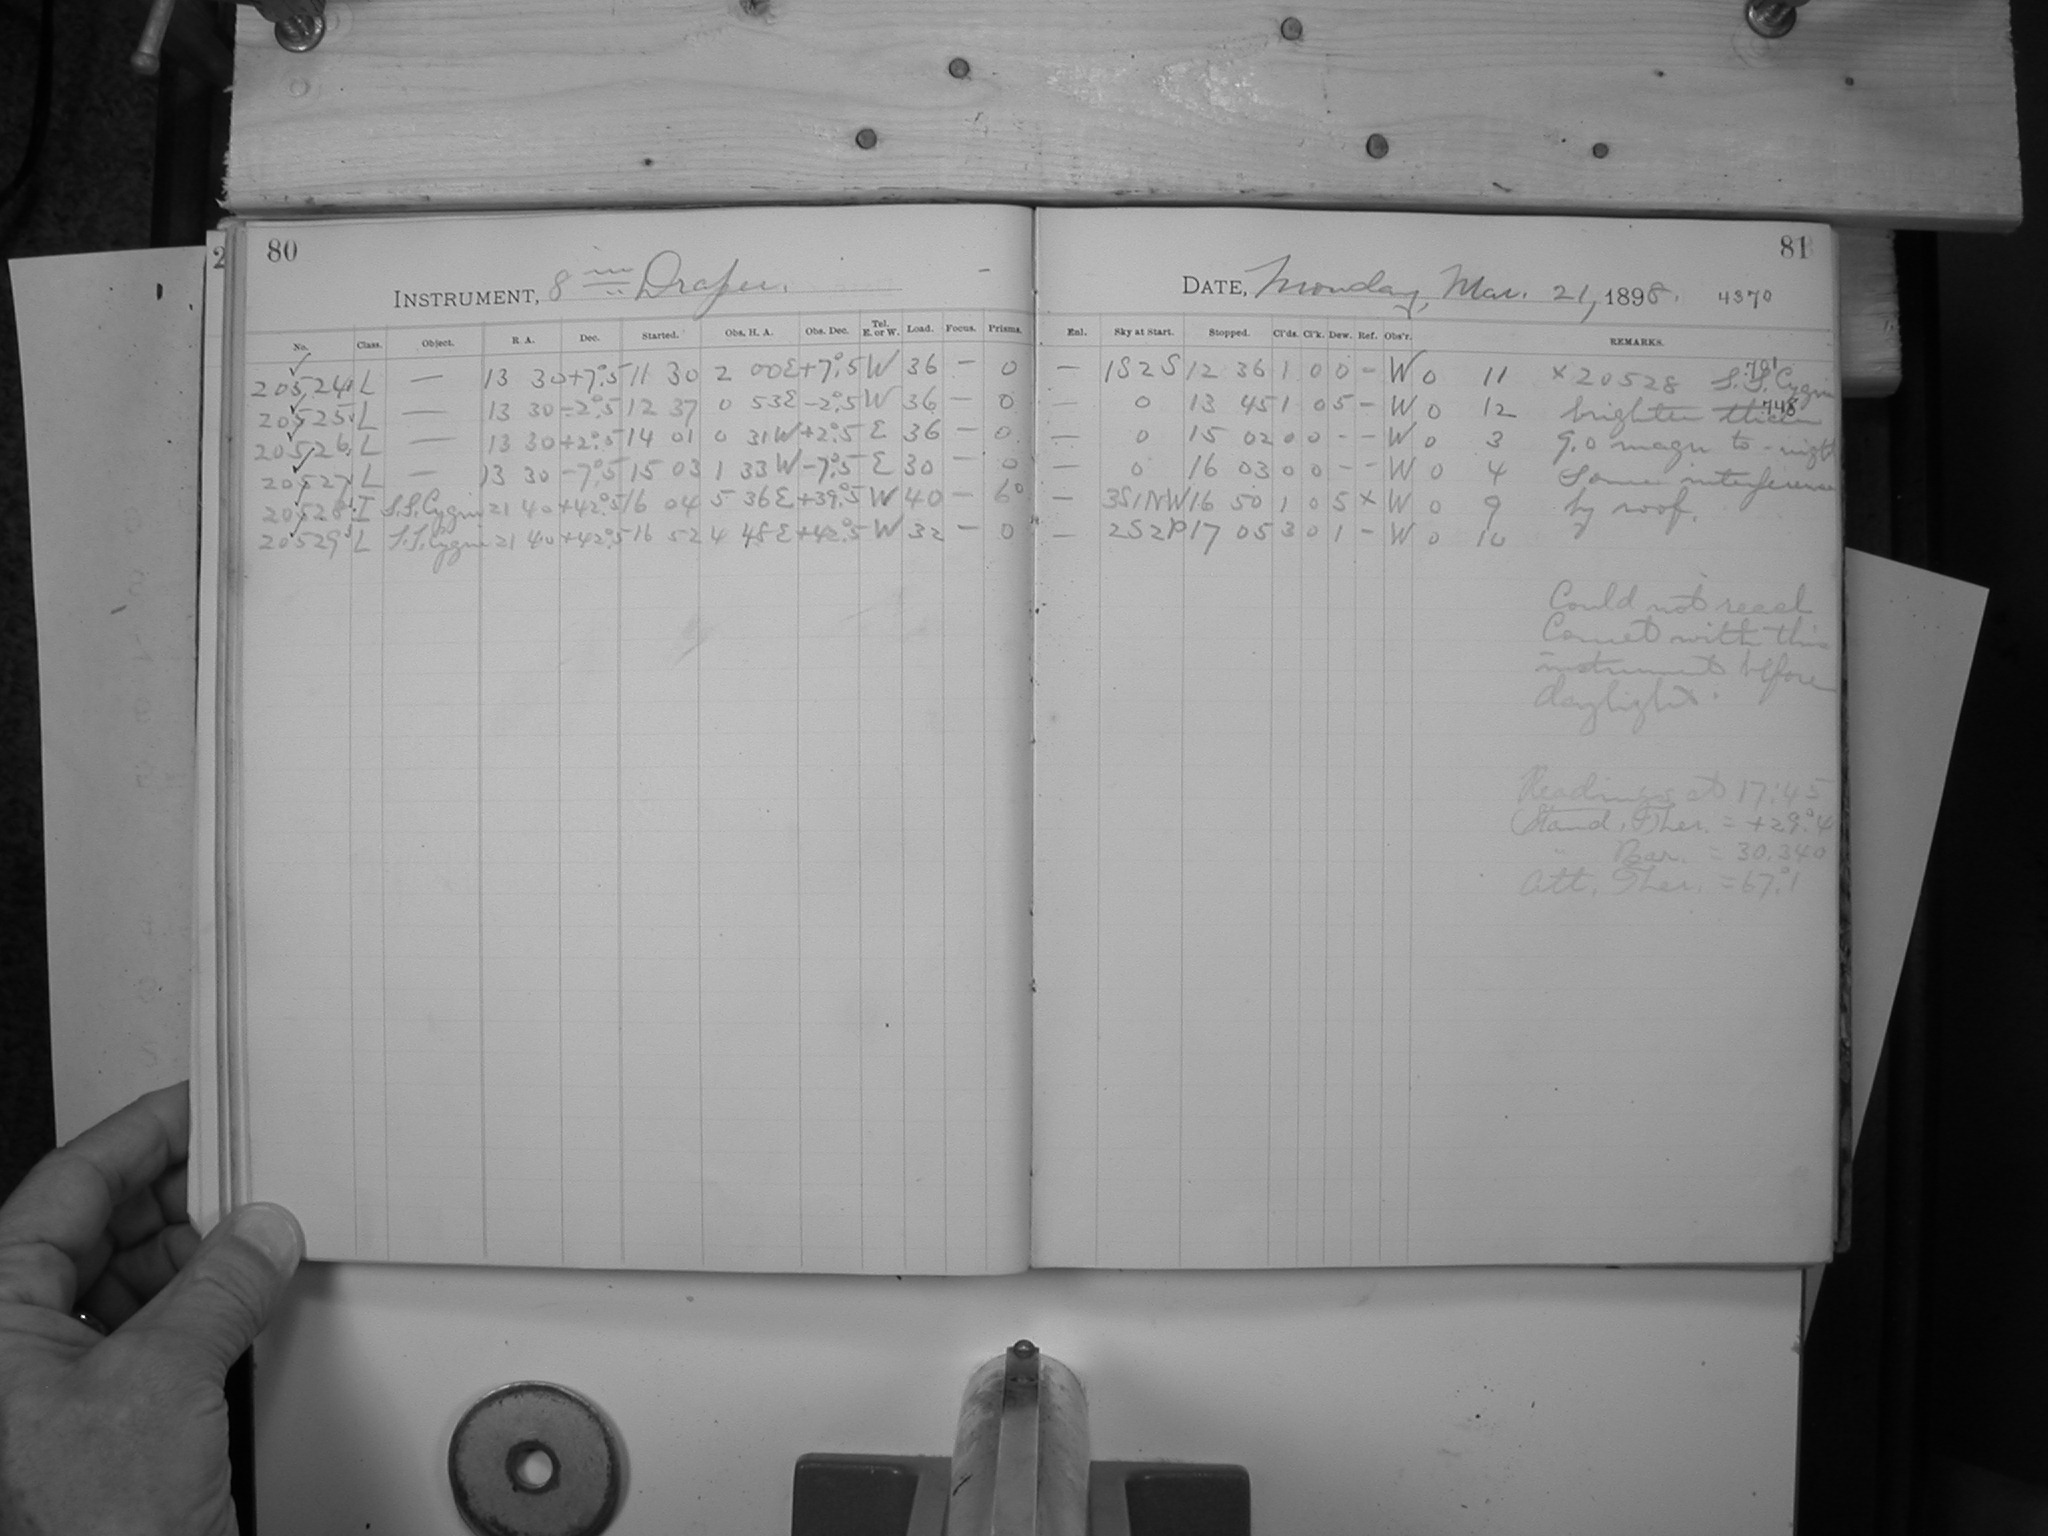 80
INSTRUMENT, 8 in Draper.
No. Class. Object. R. A. Dec. Started. Obs. H. A. Obs. Dec. Tel. E. or W. Load. Focus. Prisms.
20524 L — 13 30 +7°.5 11 30 2 00 E +7°.5 W 36 — 0
20525 L — 13 30 -2°.5 12 37 0 53 E -2°.5 W 36 — 0
20526 L — 13 30 +2°.5 14 01 0 31 W +2°.5 E 36 — 0
20527 L — 13 30 -7°.5 15 03 1 33 W -7°.5 E 30 — 0
20528 I S.S. Cygni 21 40 +42°.5 16 04 5 36 E +39°.5 W 40 — 6°
20529 L S.S. Cygni 21 40 +42°.5 16 52 4 48 E +42°.5 W 32 — 0
81
DATE, Monday, Mar. 21, 1898. 4370
Enl. Sky at Start. Stopped. Cl'ds. Cl'k. Dew. Ref. Obs'r. REMARKS.
— 1S2S 12 36 1 0 0 - W 0 11
— 0 13 45 1 0 5 - W 0 12
— 0 15 02 0 0 - - W 0 3
— 0 16 03 0 0 - - W 0 4
— 3S1NW 16 50 1 0 5 × W 0 9
— 2S2P 17 05 3 0 1 - W 0 10
× 20528 S.S. Cygni
brighter than
9.0 magn to-night
Some interference
by roof.
Could not reach
Comet with this
instrument before
daylight.
Readings at 17:45
Stand. Ther. = +29°.4
" Bar. = 30.340
Att. Ther. = 67°.1